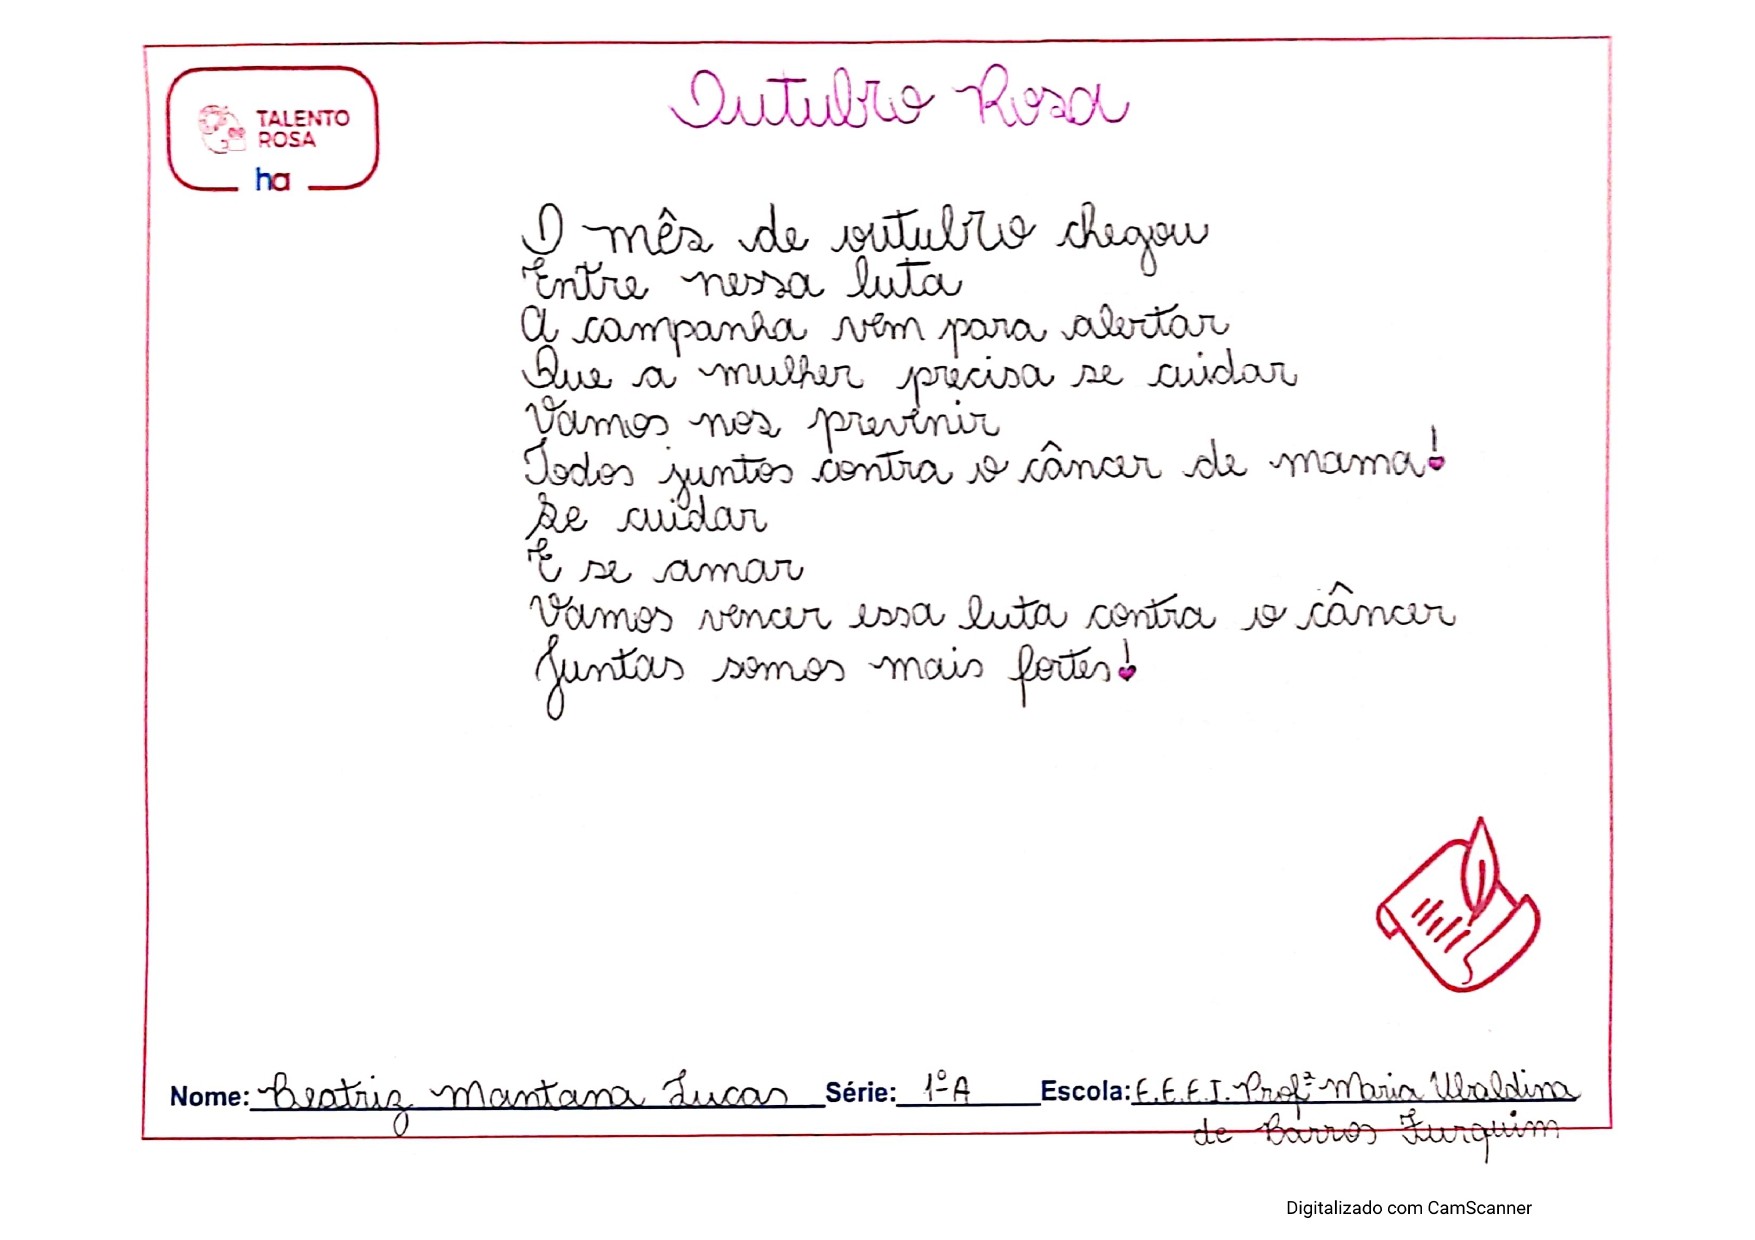 TALENTO
ROSA
ha
Outubro Rosa
O mês de outubro chegou
Entre nessa luta
A campanha vem para alertar
Que a mulher precisa se cuidar
Vamos nos prevenir
Todos juntos contra o câncer de mama!
Se cuidar
E se amar
Vamos vencer essa luta contra o câncer
Juntas somos mais fortes!
Nome: Beatriz Mantana Lucas Série: 1ºA Escola: E.E.E.I. Profª Maria Ubaldina
de Barros Furquim
Digitalizado com CamScanner